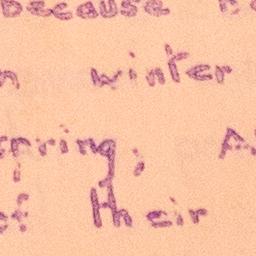 Because
winter
spring;
of their